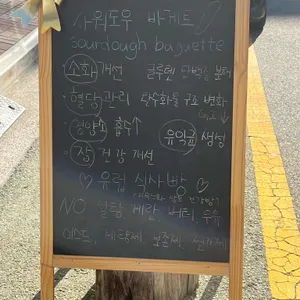 사워도우 바게트
sourdough baguette
소화 개선 글루텐 단백질 분해
· 혈당 관리 탄수화물 구조 변화
· 영양소 흡수↑ 유익균 생성
· 장 건강 개선
♡ 유럽 식사빵 ♡
NO 설탕 계란 버터 우유
이스트, 개량제, 보존제,